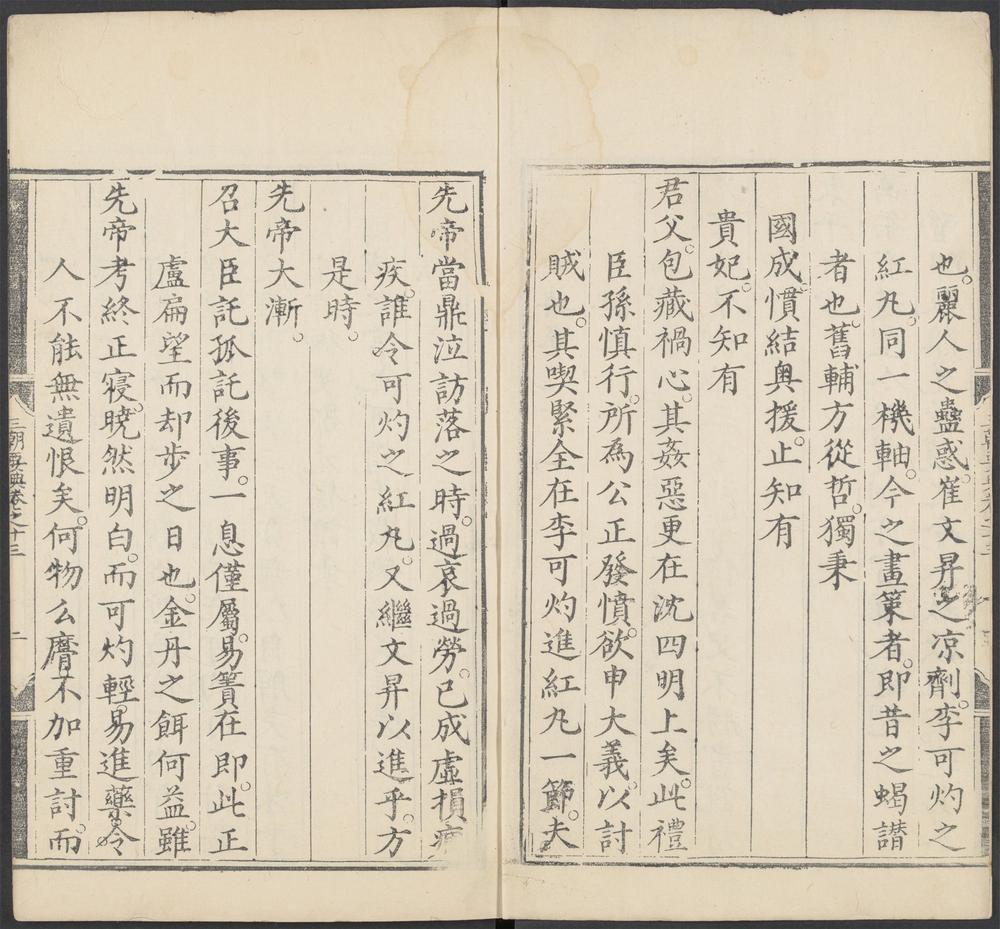 也。麗人之蠱惑。崔文昇之凉劑。李可灼之
紅丸。同一機軸。今之畫策者。即昔之蝎譖
者也。舊輔方從哲。獨秉
國成。慣結奥援。止知有
貴妃。不知有
君父。包藏禍心。其姦惡更在沈四明上矣。此禮
臣孫慎行。所為公正發憤。欲申大義。以討
賊也。其喫緊全在李可灼進紅丸一節。夫
先帝當鼎泣訪落之時。過哀過勞。已成虚損
疾。誰令可灼之紅丸。又繼文昇以進乎。方
是時。
先帝大漸。
召大臣託孤託後事。一息僅屬。易簀在即。此正
盧扁望而却步之日也。金丹之餌何益。雖
先帝考終正寝。曉然明白。而可灼輕易進藥。令
人不能無遺恨矣。何物么麿。不加重討。而
三朝要典卷之十三
二